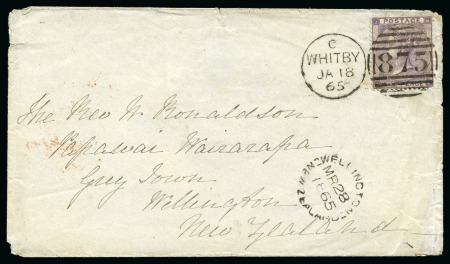 POSTAGE
C
WHITBY
JA 18
65
875
The Rev W. Ronaldson
Papawai Wairarapa
Grey Town
Wellington
New Zealand
WELLINGTON
NEW ZEALAND
MR 28
1865